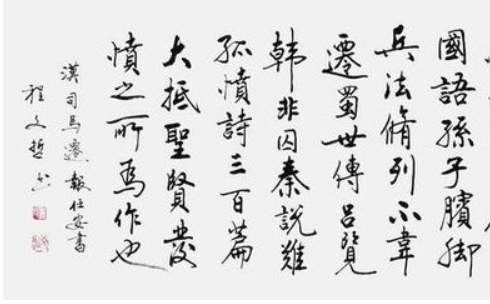 國語孫子臏脚
兵法脩列不韋
遷蜀世傳呂覽
韓非囚秦說難
孤憤詩三百篇
大抵聖賢發
憤之所為作也
漢司馬遷報任安書
程文哲书